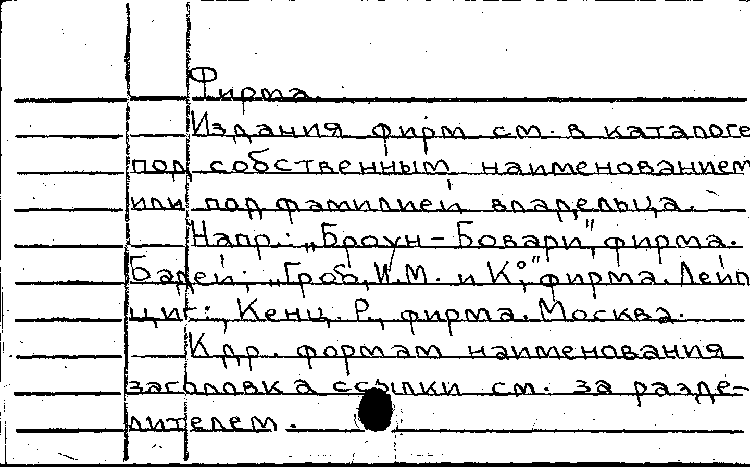 Фирма.
Издания фирм см. в каталоге
под собственным наименованием
или под фамилией владельца.
Напр.: „Броун-Бовари", фирма.
Баден; „Гроб, И.М. и К°;" фирма. Лейп
циг:, Кенц. Р., фирма. Москва.
К др. формам наименования
заголовка ссылки см. за разде-
лителем.